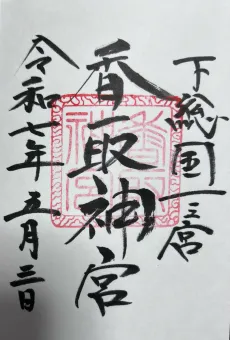 下総国一之宮
香取神宮
令和七年五月三日